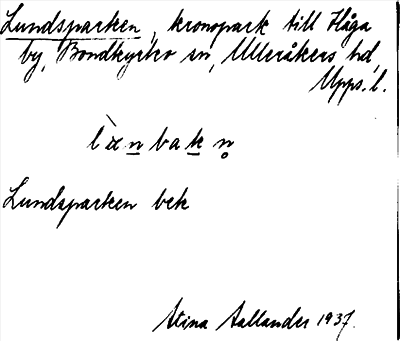 Lundsparken, kronopark till Håga
by, Bondkyrko sn, Ulleråkers hd,
Upps. l.
Lundsparken bek
Stina Aallander 1937.